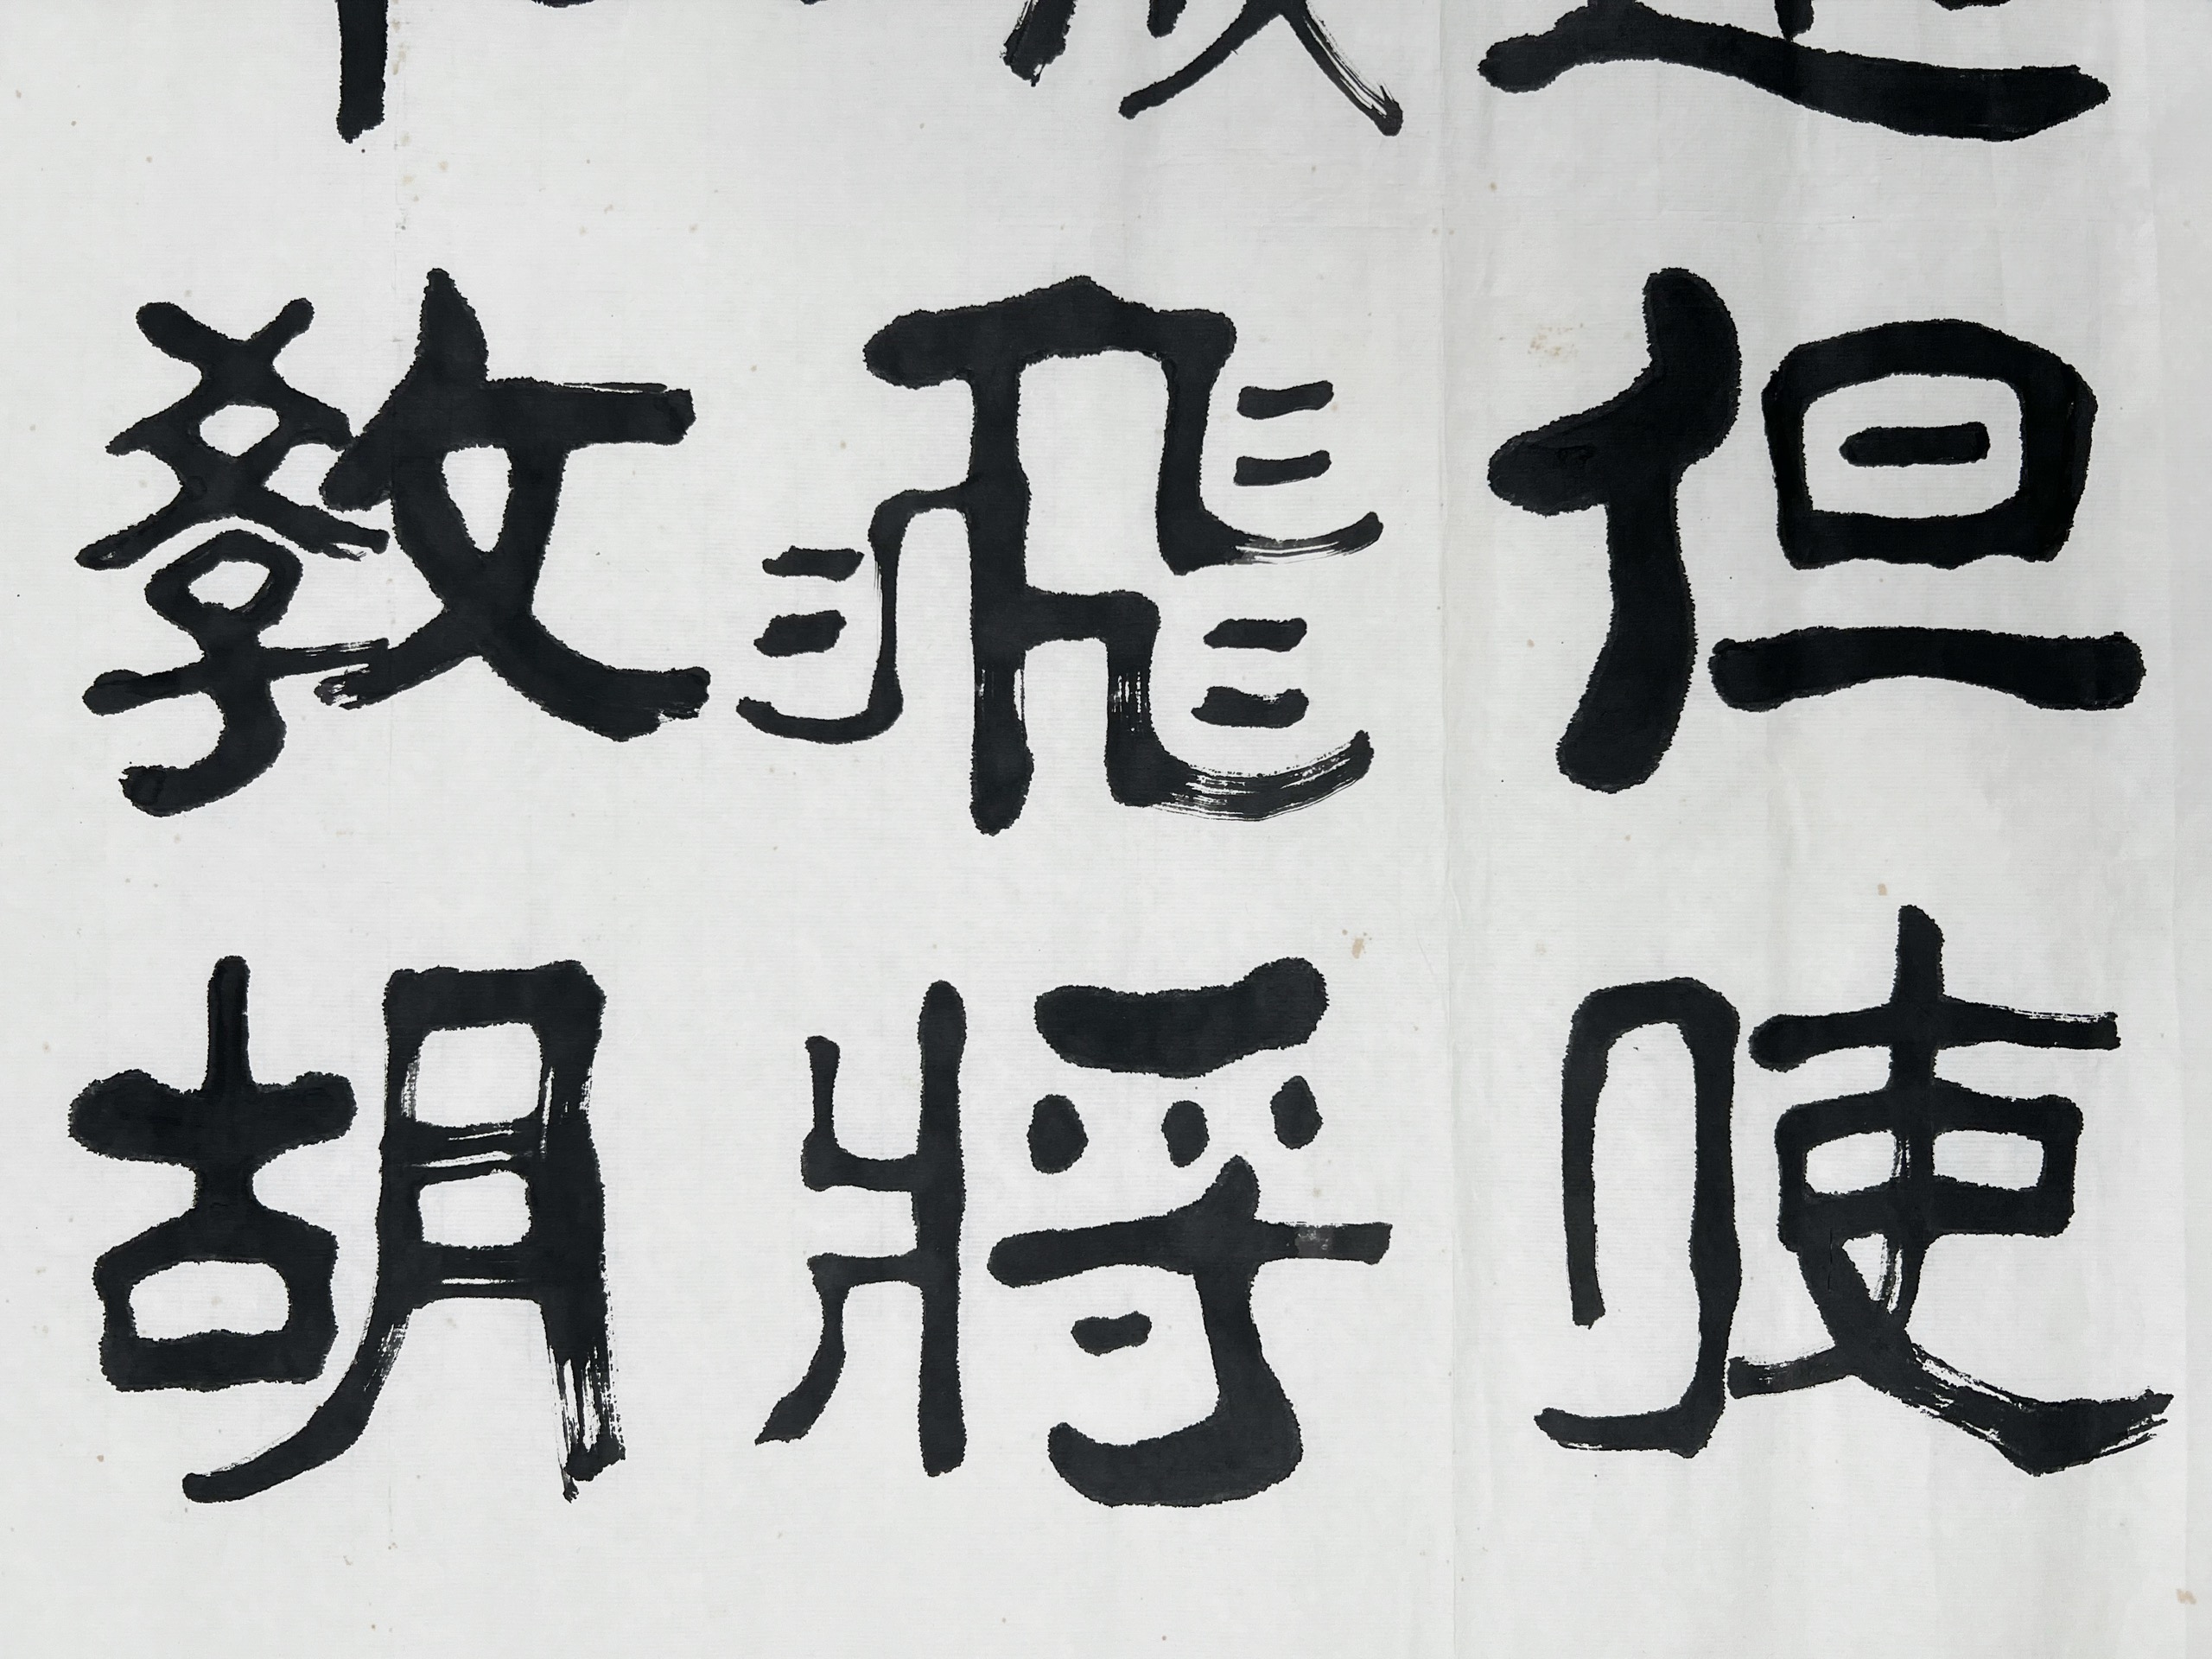 但使
飛將
敎胡